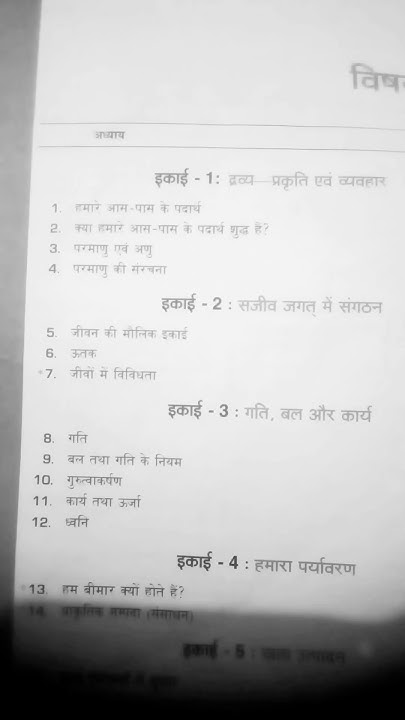 अध्याय
इकाई - 1: द्रव्य—प्रकृति एवं व्यवहार
1. हमारे आस-पास के पदार्थ
2. क्या हमारे आस-पास के पदार्थ शुद्ध हैं?
3. परमाणु एवं अणु
4. परमाणु की संरचना
इकाई - 2 : सजीव जगत् में संगठन
5. जीवन की मौलिक इकाई
6. ऊतक
*7. जीवों में विविधता
इकाई - 3 : गति, बल और कार्य
8. गति
9. बल तथा गति के नियम
10. गुरुत्वाकर्षण
11. कार्य तथा ऊर्जा
12. ध्वनि
इकाई - 4 : हमारा पर्यावरण
*13. हम बीमार क्यों होते हैं?
14. प्राकृतिक सम्पदा (संसाधन)
इकाई - 5 : खाद्य उत्पादन